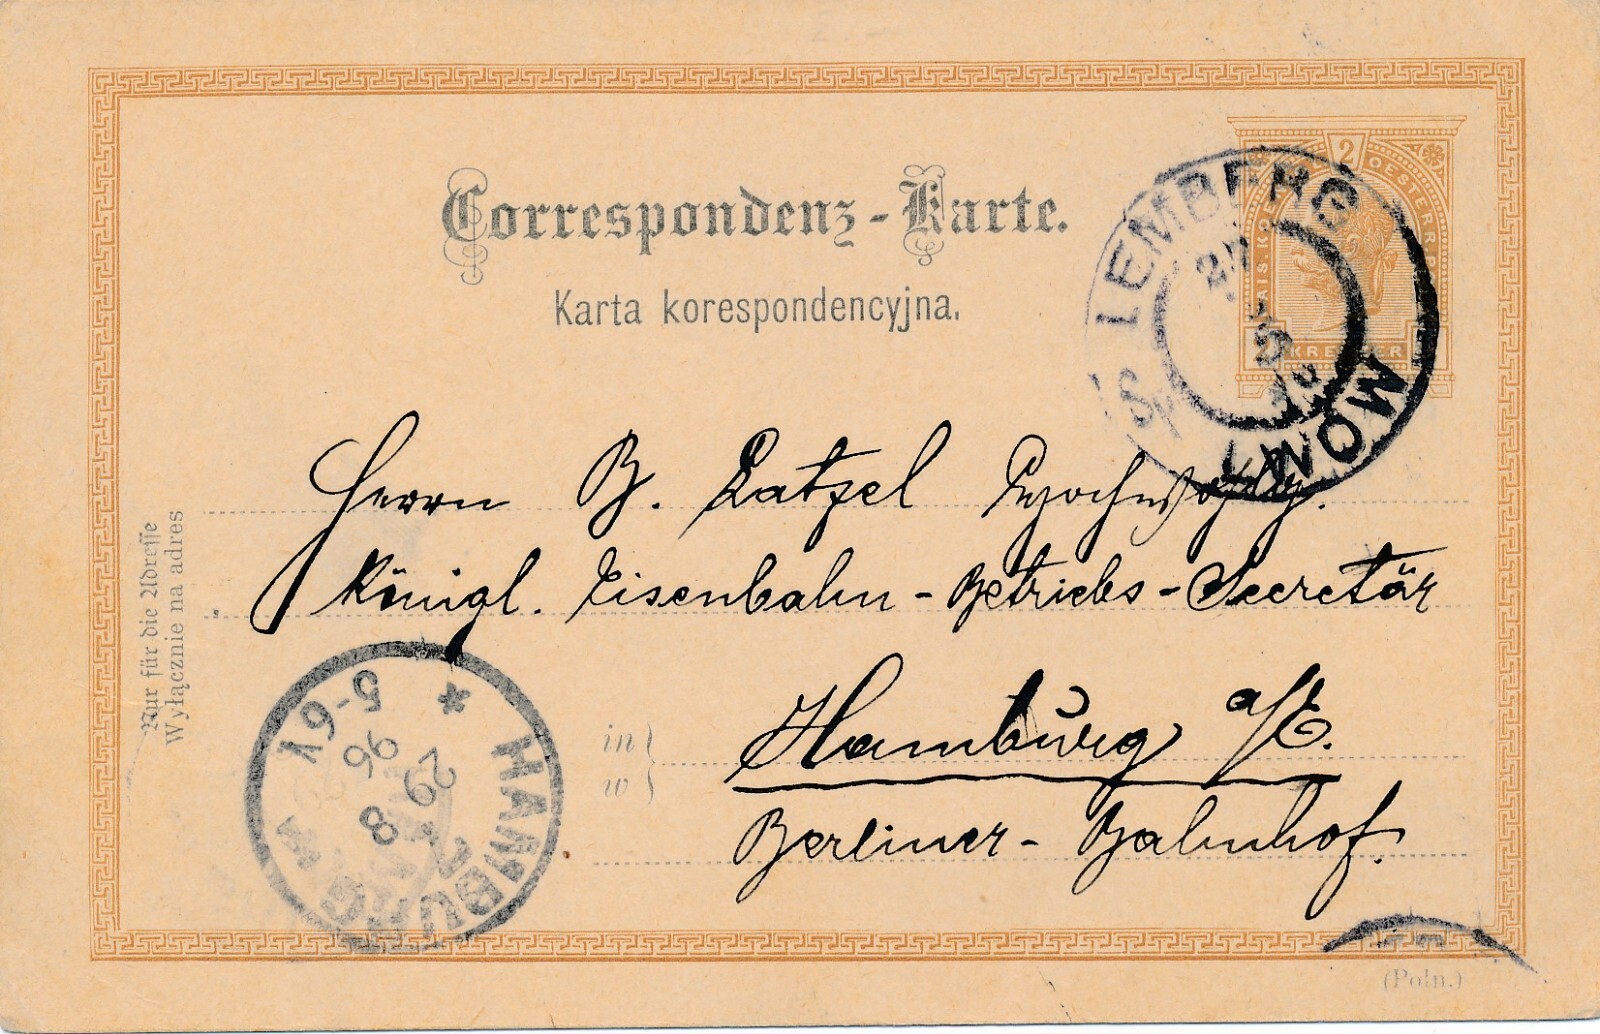 Correspondenz-Karte.
Karta korespondencyjna.
2
KREUZER
LEMBERG
LWÓW
Herrn B. Latzel
Königl. Eisenbahn-Betriebs-Secretär
in
w
Hamburg a/E.
Berliner-Bahnhof.
Nur für die Adresse
Wyłącznie na adres
HAMBURG
*
5-6V
29 8
96
(Poln.)